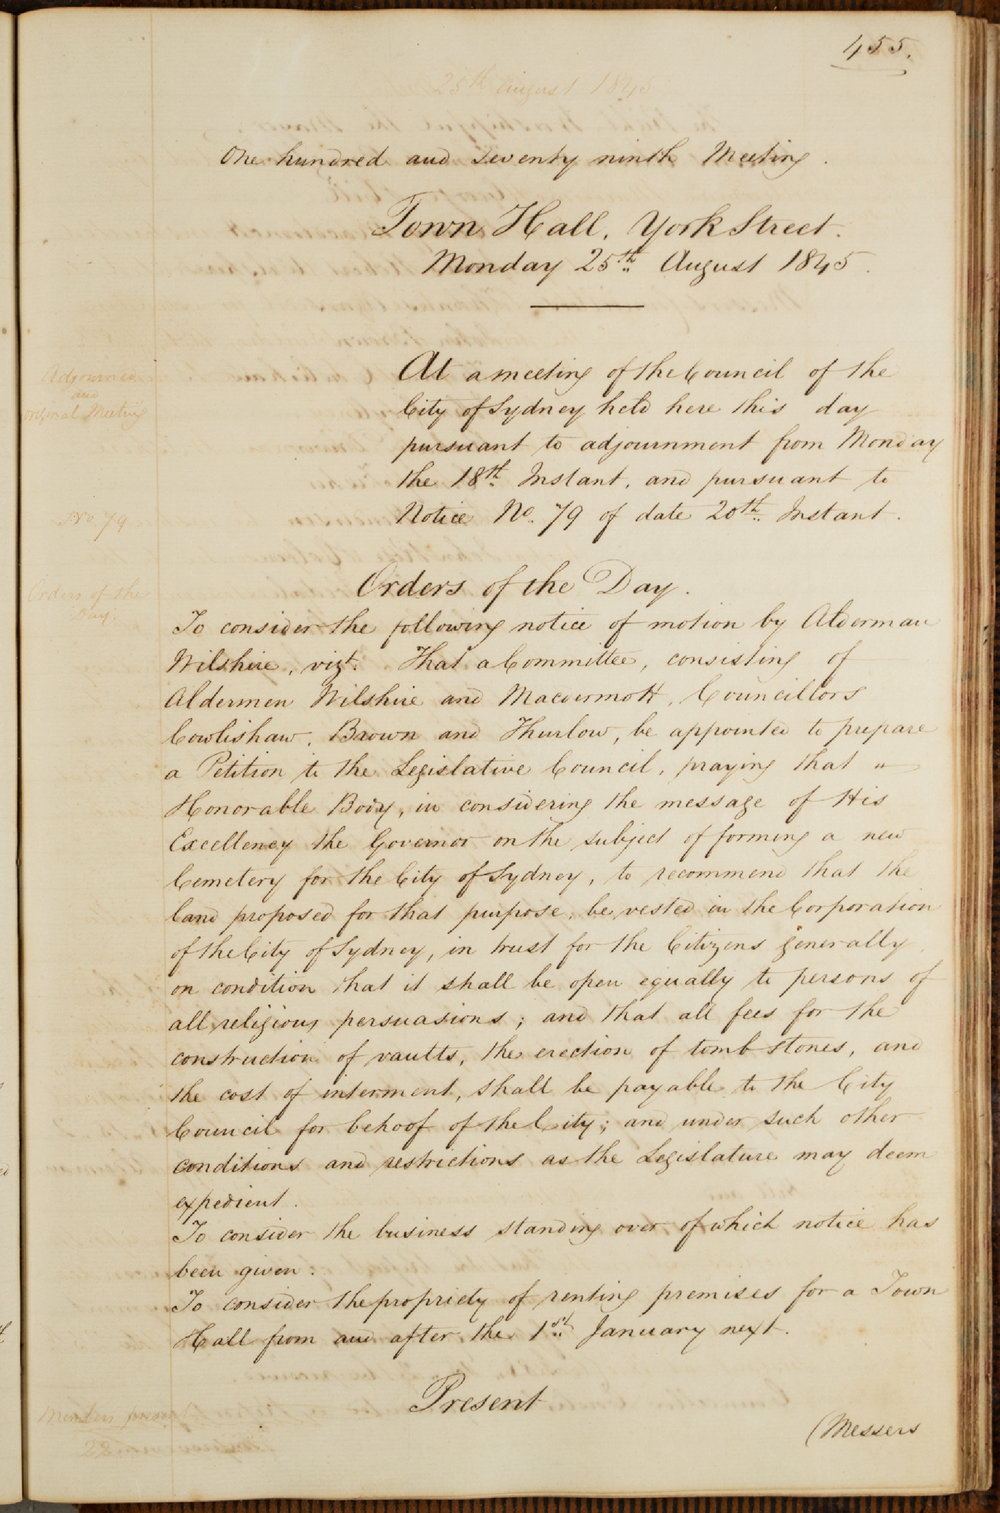 455.
25th August 1845
One hundred and seventy ninth Meeting.
Town Hall, York Street.
Monday 25th August 1845.
At a meeting of the Council of the
City of Sydney held here this day
pursuant to adjournment from Monday
the 18th Instant, and pursuant to
Notice No. 79 of date 20th Instant.
Adjourned
and
Meeting
No. 79
Orders of the Day.
Orders of the
Day.
To consider the following notice of motion by Alderman
Wilshire, vizt. That a Committee, consisting of
Aldermen Wilshire and Macdermott, Councillors
Cowlishaw, Brown and Thurlow, be appointed to prepare
a Petition to the Legislative Council, praying that "
Honorable Body, in considering the message of His
Excellency the Governor on the subject of forming a new
Cemetery for the City of Sydney, to recommend that the
land proposed for that purpose, be vested in the Corporation
of the City of Sydney, in trust for the Citizens generally
on condition that it shall be open equally to persons of
all religious persuasions; and that all fees for the
construction of vaults, the erection of tomb stones, and
the cost of interment, shall be payable to the City
Council for behoof of the City; and under such other
conditions and restrictions as the Legislature may deem
expedient.
To consider the business standing over of which notice has
been given.
To consider the propriety of renting premises for a Town
Hall from and after the 1st January next.
Present
Members present
22
(Messers